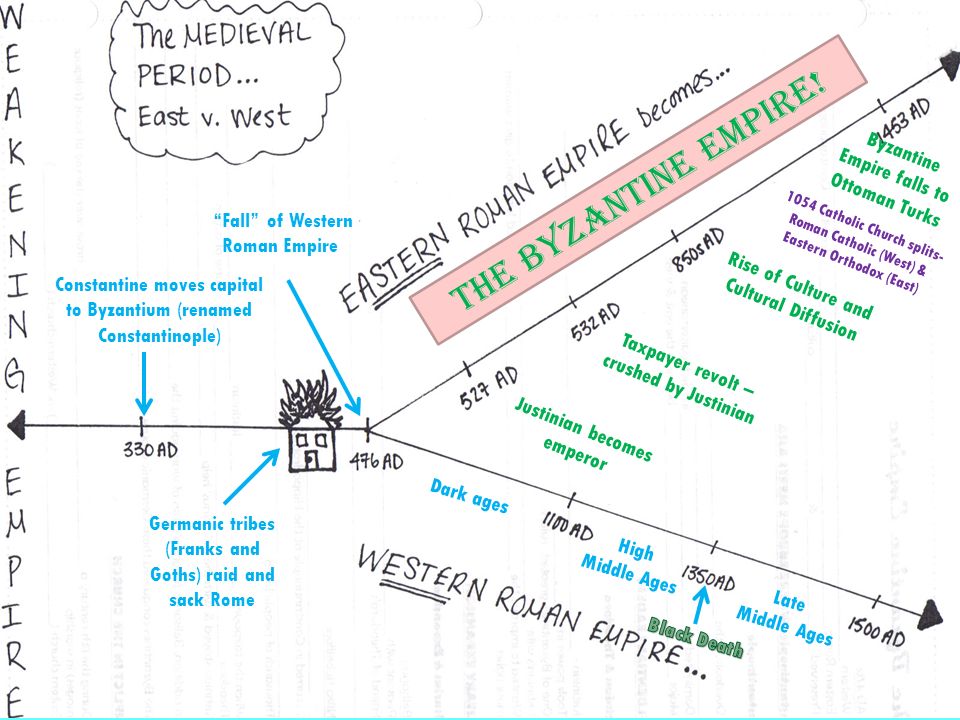 WEAKENING EMPIRE
The MEDIEVAL
PERIOD...
East v. West
EASTERN ROMAN EMPIRE becomes...
THE BYZANTINE EMPIRE!
1453 AD
Byzantine
Empire falls to
Ottoman Turks
1054 Catholic Church splits-
Roman Catholic (West) &
Eastern Orthodox (East)
850s AD
Rise of Culture and
Cultural Diffusion
532 AD
Taxpayer revolt –
crushed by Justinian
527 AD
Justinian becomes
emperor
“Fall” of Western
Roman Empire
Constantine moves capital
to Byzantium (renamed
Constantinople)
330 AD
476 AD
Germanic tribes
(Franks and
Goths) raid and
sack Rome
Dark ages
1100 AD
High
Middle Ages
1350 AD
Black Death
Late
Middle Ages
1500 AD
WESTERN ROMAN EMPIRE...